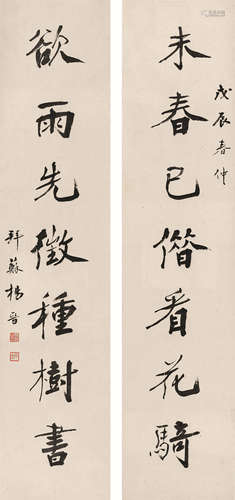 戊辰春仲
未春已僭看花騎
欲雨先徵種樹書
拜蘇楊晉